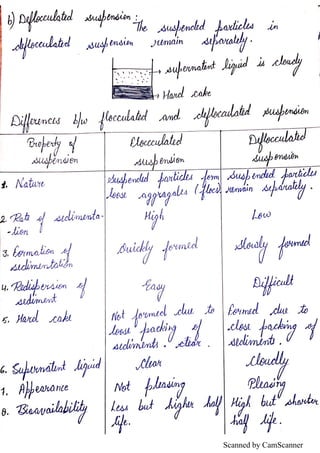 b) Deflocculated suspension :
The suspended particles in
deflocculated suspension remain separately.
supernatant liquid is cloudy
Hard cake
Differences b/w flocculated and deflocculated suspension
Property of suspension
Flocculated suspension
Deflocculated suspension
1. Nature
Suspended particles form loose aggregates (flocs).
Suspended particles remain separately.
2. Rate of sedimenta-
-tion
High
Low
3. Formation of sedimentation
Quickly formed
slowly formed
4. Redispersion of sediment
Easy
Difficult
5. Hard cake
Not formed due to
loose packing of
sediments. clear.
formed due to
close packing of
sediments.
6. Supernatant liquid
Clear
Cloudly
7. Appearance
Not pleasing
Pleasing
8. Bioavailability
Less but higher half
life.
High but shorter
half life.
Scanned by CamScanner